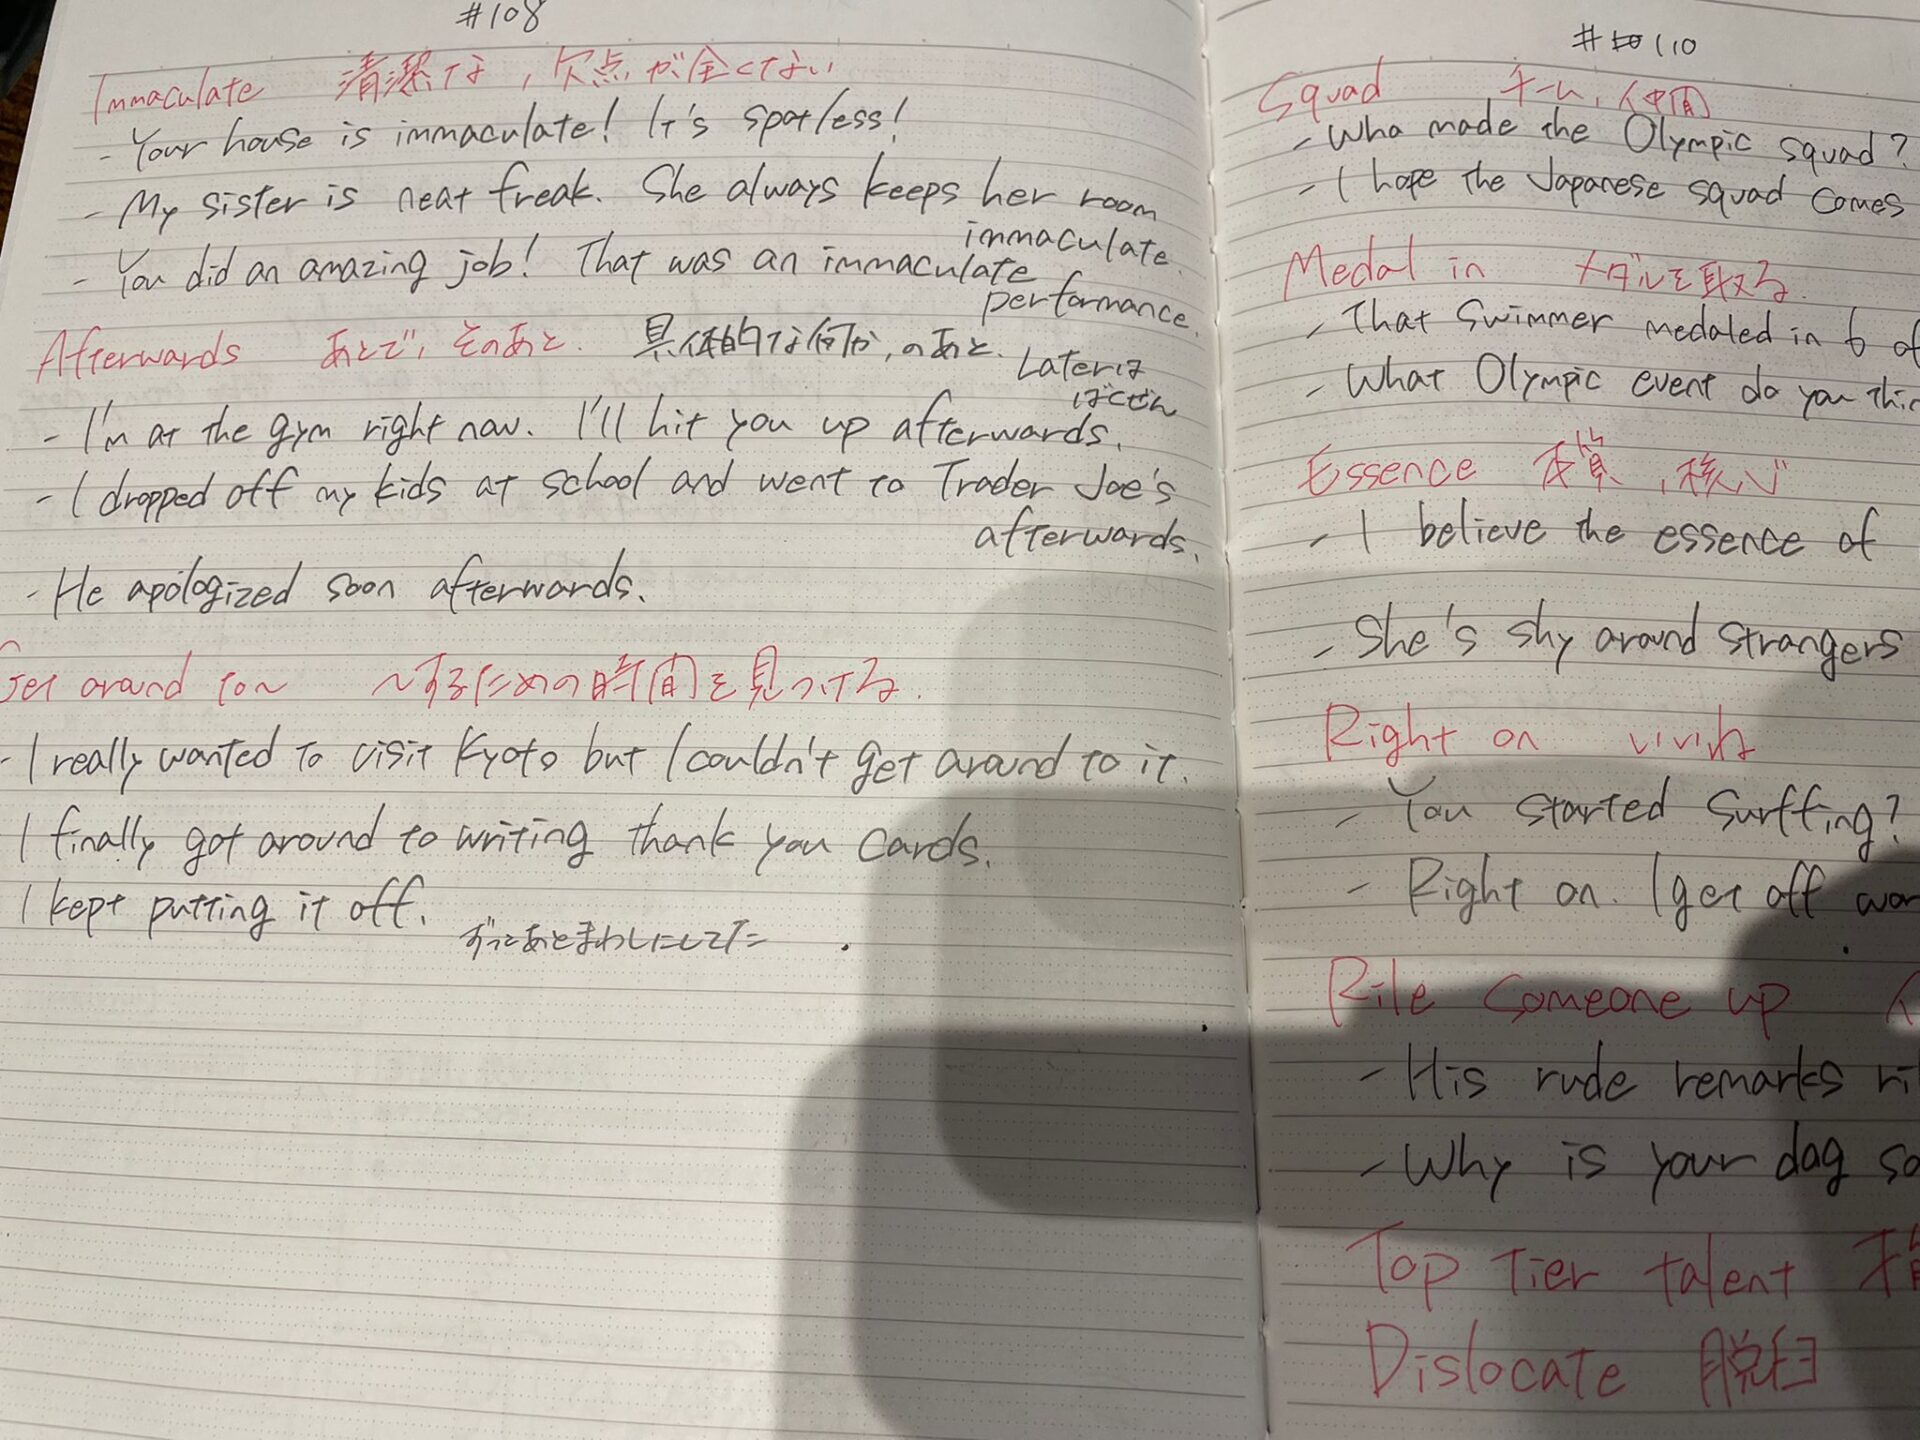 #108
Immaculate 清潔な,欠点が全くない
- Your house is immaculate! It's spotless!
- My sister is neat freak. She always keeps her room
immaculate.
- You did an amazing job! That was an immaculate
performance.
Afterwards あとで,そのあと. 具体的な何か,のあと.
Laterは
ばくぜん
- I'm at the gym right now. I'll hit you up afterwards.
- I dropped off my kids at school and went to Trader Joe's
afterwards.
- He apologized soon afterwards.
Get around to~ ~するための時間を見つける.
- I really wanted to visit Kyoto but I couldn't get around to it.
I finally got around to writing thank you cards.
I kept putting it off.
ずっとあとまわしにしてた
#110
Squad チーム,仲間
- Who made the Olympic squad?
- I hope the Japanese squad comes
Medal in メダルを取る.
- That swimmer medaled in 6 of
- What Olympic event do you
Essence 本質,核心
- I believe the essence of
- She's shy around strangers
Right on いいね
- You started surfing?
- Right on. I get off
Rile someone up
- His rude remarks
- Why is your dog so
Top tier talent
Dislocate 脱臼